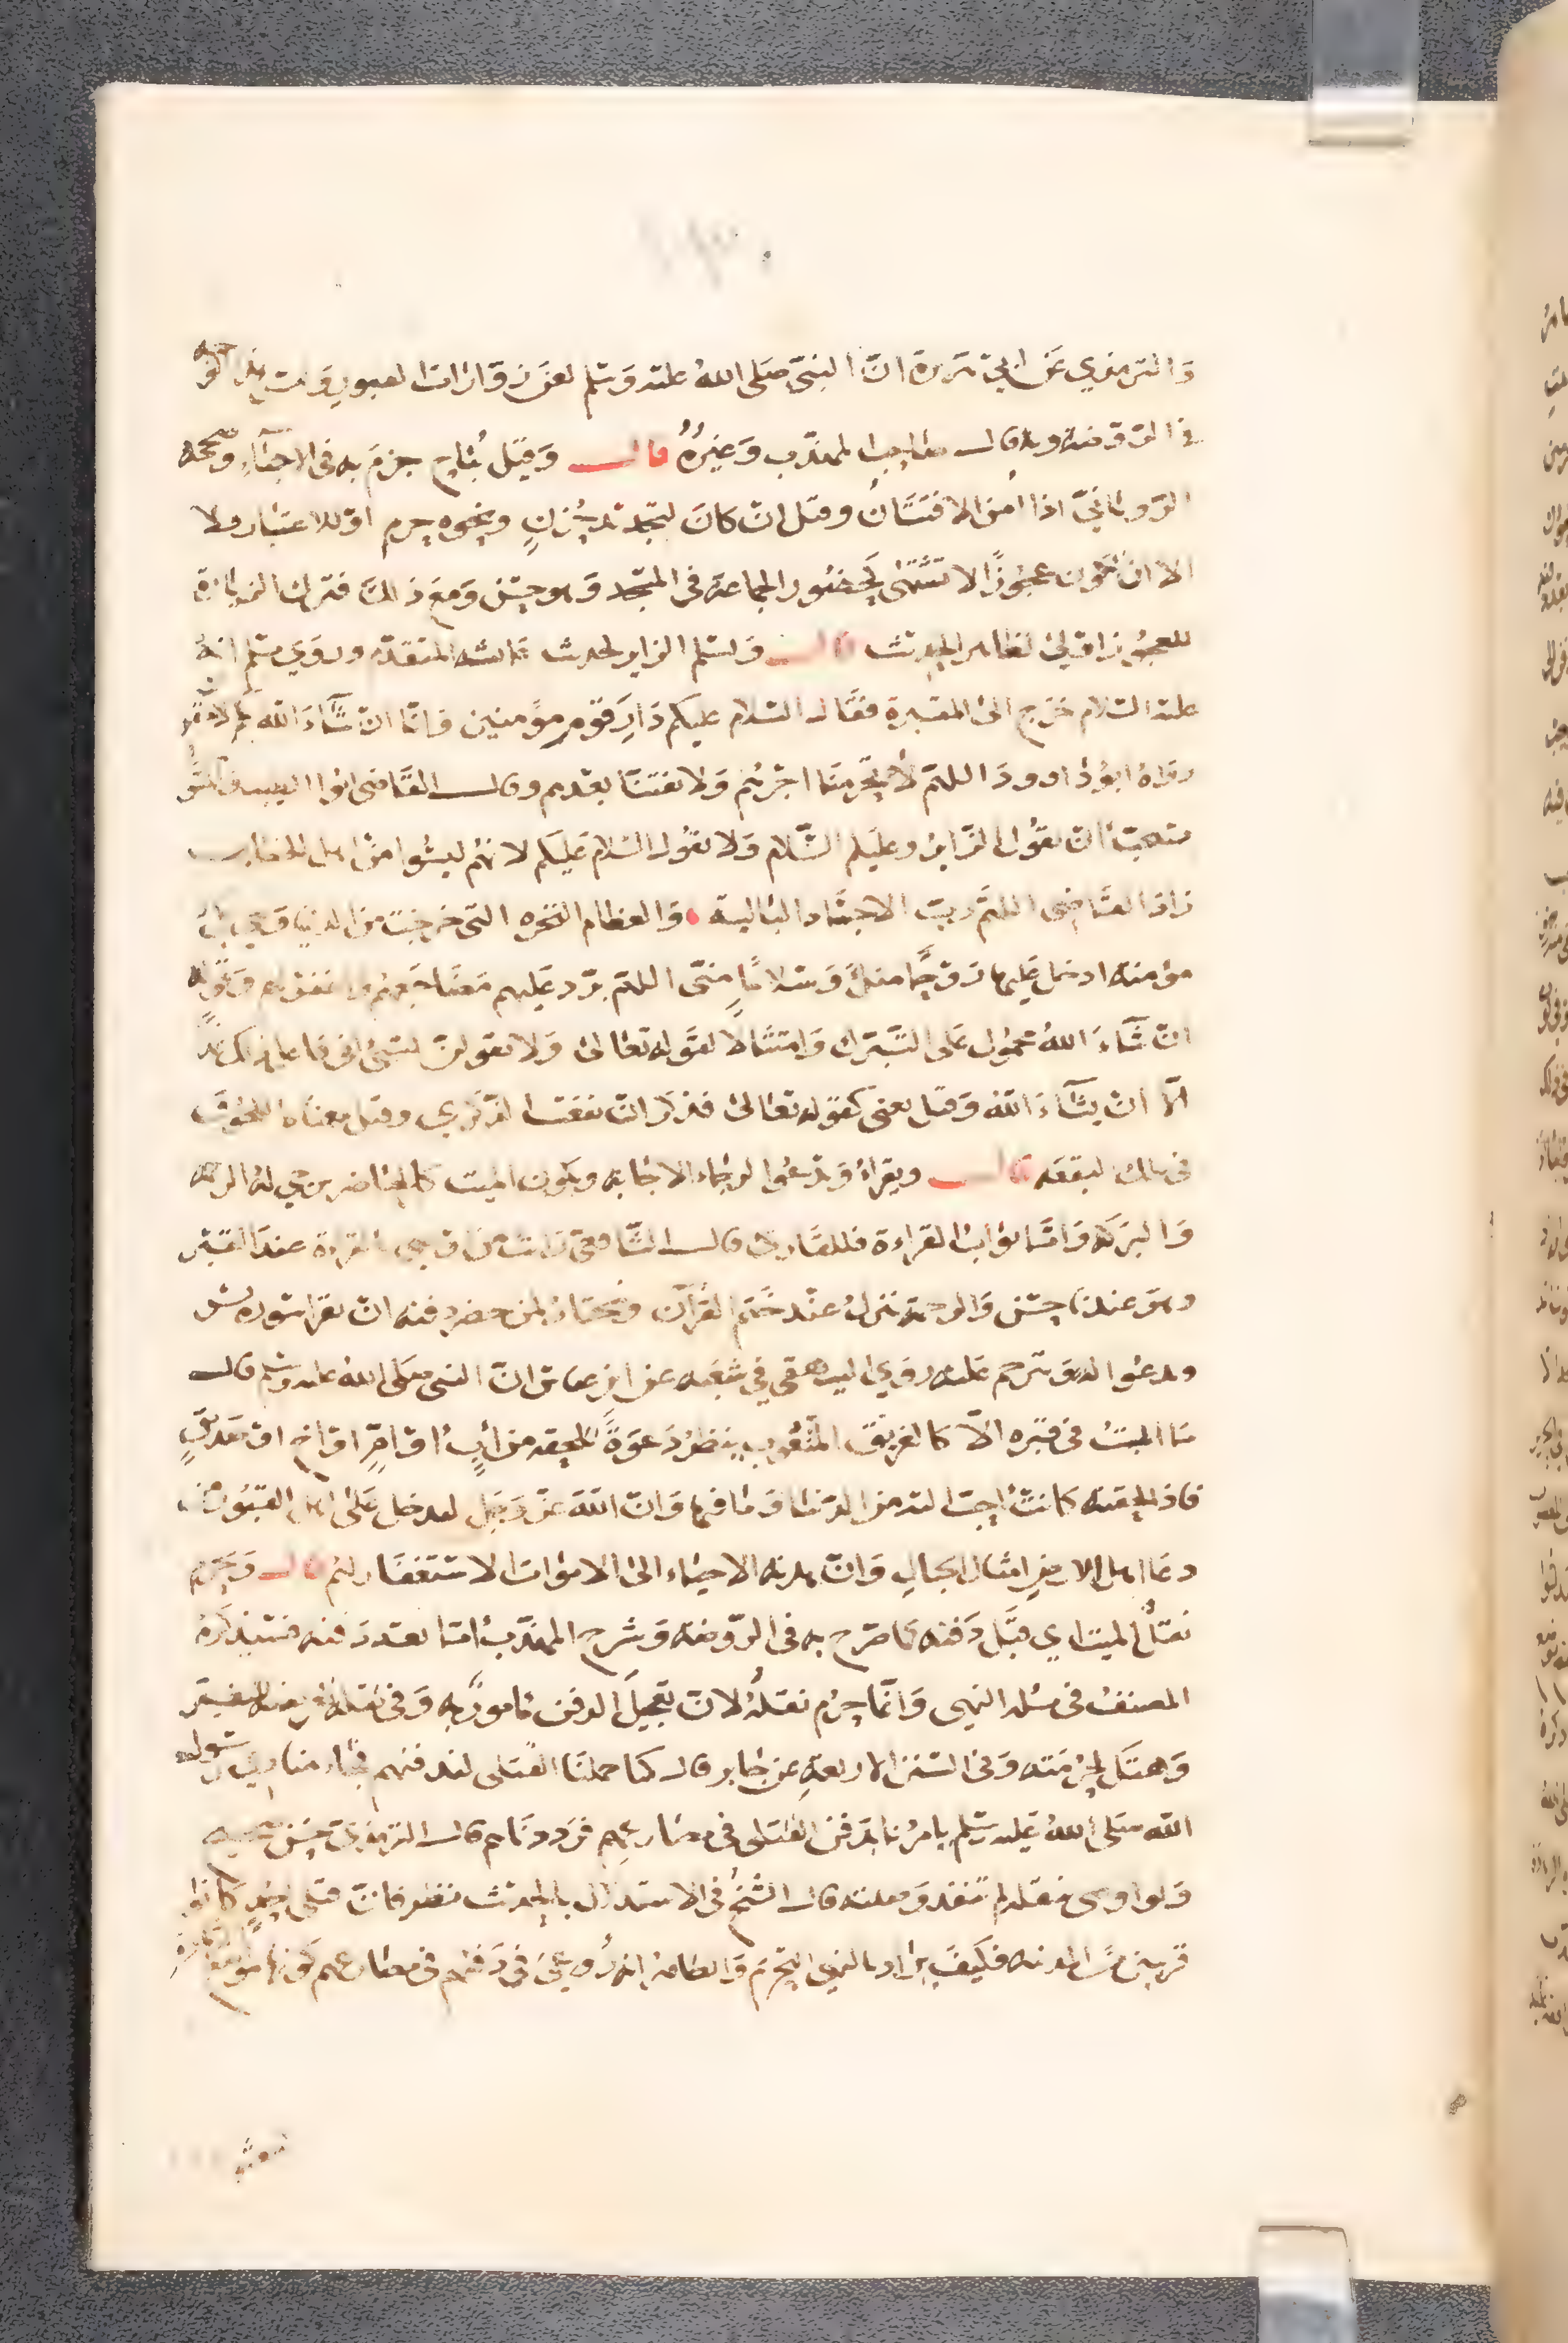 والترمذي عن ابي هريرة ان النبي صلى الله عليه وسلم لعن زوارات القبور
في الروضه وبه قال صاحب المهذب وغيره قال وقيل يباح جزم به في الاحياء وصححه
الروياني اذا أمن الافتتان وقيل ان كان لتجديد حزن ونحوه حرم او للاعتبار فلا
الا ان تكون عجوزا لا تشتهى كحضور الجماعة في المسجد وهو حسن ومع ذلك فترك الزيارة
للعجوز اولى لظاهر الحديث قال وليسلم الزاير لحديث عائشه المتقدم وروى مسلم انه
عليه السلام خرج الى المقبرة فقال السلام عليكم دار قوم مؤمنين وانا ان شاء الله بكم لاحقون
رواه ابو داود اللهم لا تحرمنا اجرهم ولا تفتنا بعدهم وقال القاضي ابوا الطيب
يستحب ان يقول الزاير وعليكم السلام ولا يقول السلام عليكم لانهم ليسوا من اهل الخطاب
زاد القاضي اللهم رب الاجساد البالية والعظام النخره التي خرجت من الدنيا وهي بك
مؤمنه ادخل عليها روحا منك وسلاما منى اللهم برد عليهم مضاجعهم واغفر لهم وقوله
ان شاء الله محمول على التبرك وامتثالا لقوله تعالى ولا تقولن لشيء اني فاعل ذلك غدا
الا ان يشاء الله وقيل بمعنى كقوله تعالى فذكر ان نفعت الذكرى وقيل معناه اللحوق
في تلك البقعه قال ويقراء ويدعوا لرجاء الاجابه ويكون الميت كالحاضر يرجى له الرحمه
والبركة واما ثواب القراءة فللقارئ قال الشافعي القراءة عند القبر
وهو عندنا حسن والرحمة تنزل عند ختم القرآن ويختار لمن حضر دفنه ان يقرا سوره يس
ويدعوا له ويترحم عليه روى البيهقي في شعبه عن ابن عباس ان النبي صلى الله عليه وسلم قال
ما الميت في قبره الا كالغريق المتغوث ينتظر دعوة تلحقه من أب او ام او اخ او صديق
فاذا لحقته كانت احب اليه من الدنيا وما فيها وان الله عز وجل ليدخل على اهل القبور من
دعا اهل الارض امثال الجبال وان هدية الاحياء الى الاموات الاستغفار لهم قال ويحرم
نقل الميت اي قبل دفنه كما صرح به في الروضه وشرح المهذب اما بعد دفنه فسيذكره
المصنف في مسله النبش وانما حرم نقله لان تعجيل الدفن مامور به وفي نقله تاخيره
وهتك لحرمته وفي السنن الاربعة عن جابر قال كنا حملنا القتلى لندفنهم فجاء منادي رسول
الله صلى الله عليه وسلم يامرنا بدفن القتلى في مضاجعهم فرددناهم قال الترمذي حسن صحيح
ولو اوصى بنقله لم تنفذ وصيته قال الشيخ في الاستدلال بالحديث نظر فان قتلى احد كانوا
قريبين من المدينه فكيف يراد بالنهي التحريم والظاهر انه روعي في دفنهم في مضاجعهم